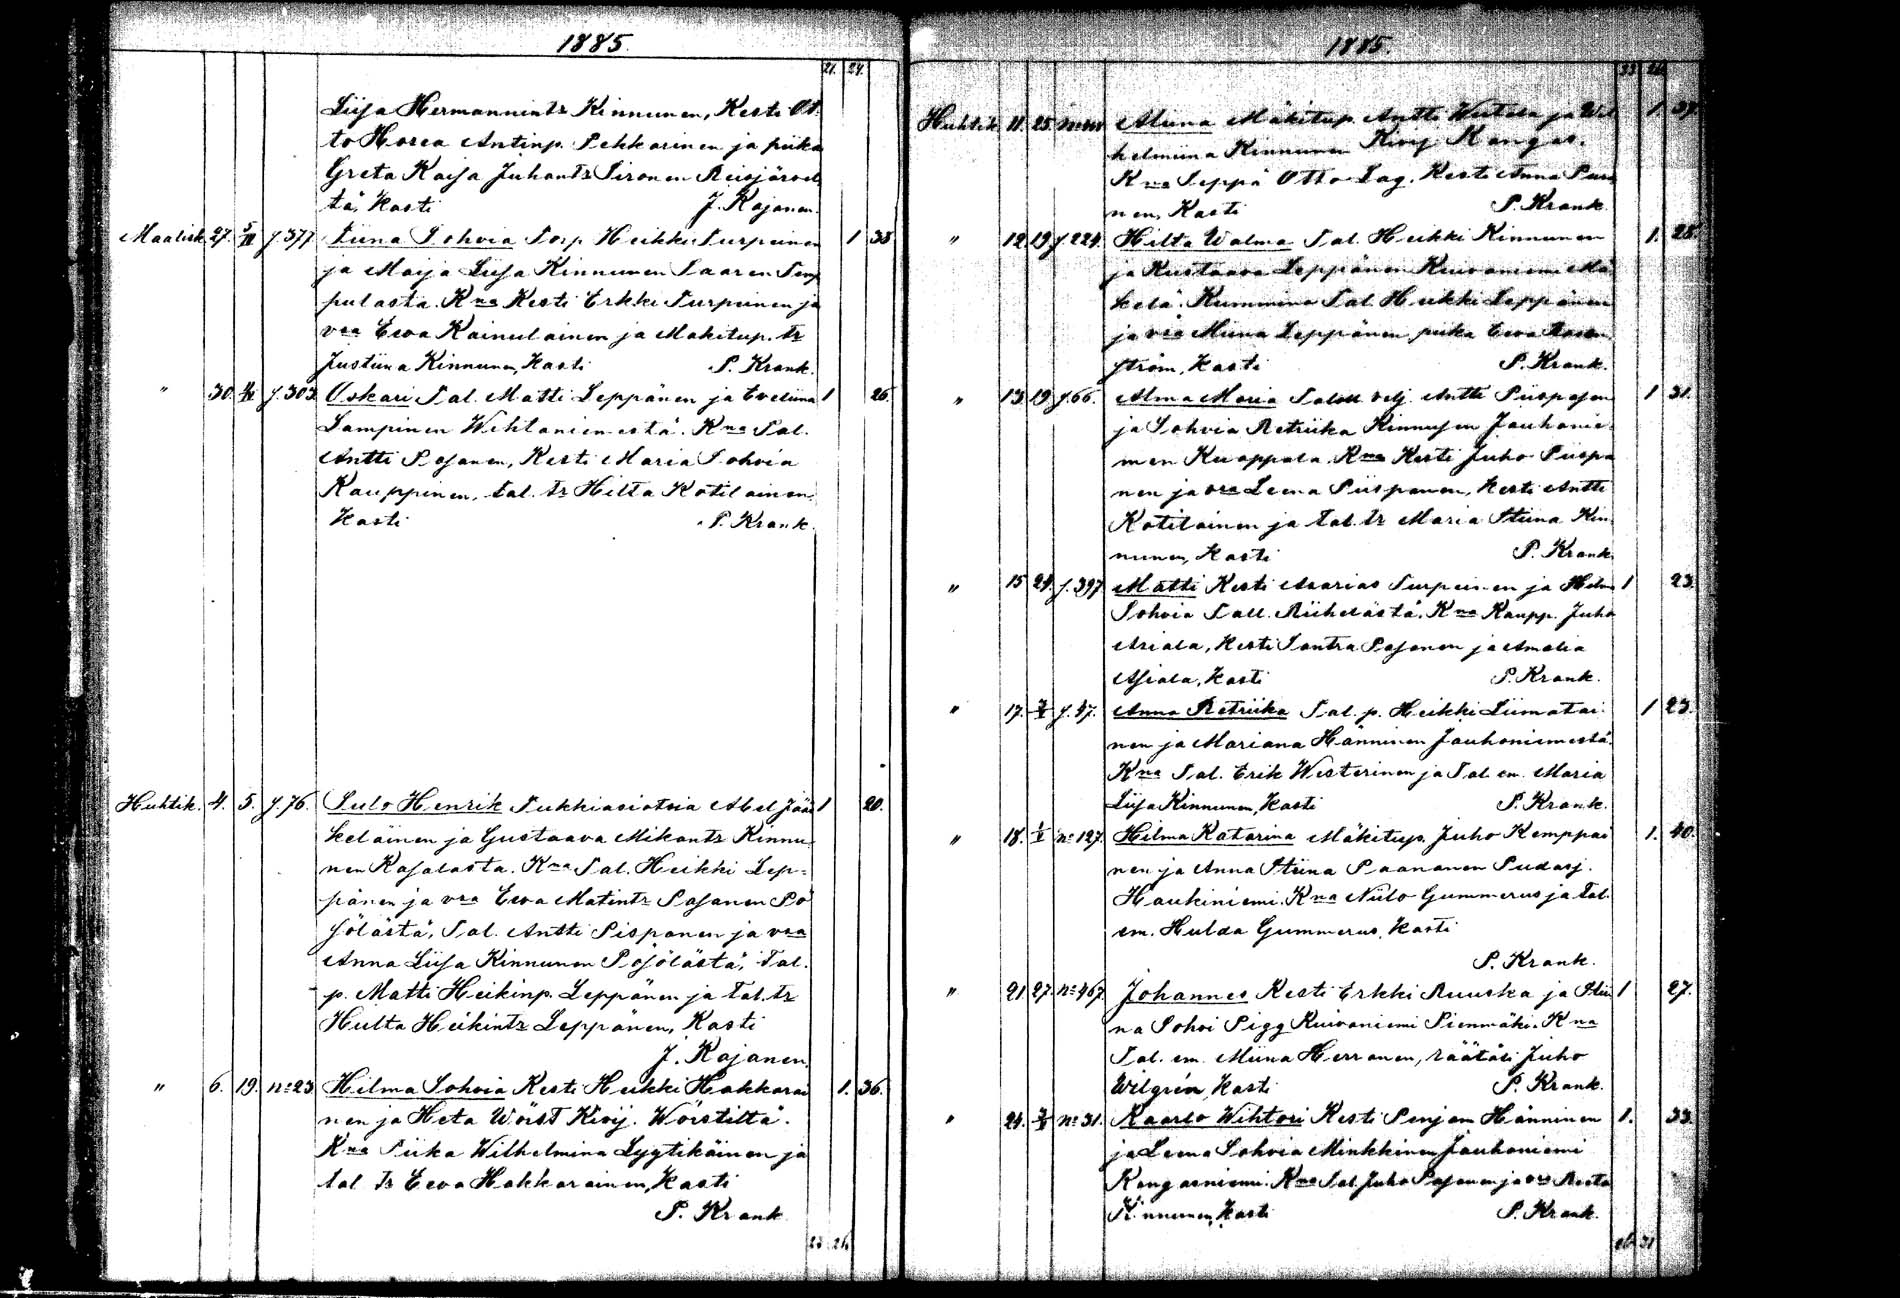 1885.
21. 24.
Liisa Hermannintr Kinnunen, Kesti Ot-
to Horea Antinp. Pekkarinen ja piika
Greta Kaisa Juhantr Sironen Reisjärvel-
tä, Kasti J. Kajanen.
Maalisk. 27. 5/IV f.377 Tiina Sohvia Torp. Heikki Turpeinen 1 38
ja Maija Liisa Kinnunen Saaren Pump
pulasta. Kna Kesti Erkki Turpeinen ja
vaa Ewa Kainulainen ja Mäkitup. tr
Justiina Kinnunen, Kasti P. Krank.
" 30. f.303. Oskari Tal. Matti Leppänen ja Eveliina 1 26.
Lampinen Wehtaniemestä. Kna Tal.
Antti Pasanen, Kesti Maria Sohvia
Kauppinen, tal. tr Hilta Kotilainen,
Kasti P. Krank.
Huhtik. 4. 5. f.76. Sulo Henrik Tukkiasiotsia Abel Jääs 1 20.
keläinen ja Gustaava Mikontr Kinnu-
nen Kasalasta. Kna Tal. Heikki Lep-
pänen ja vaa Ewa Matintr Pasanen Pö
sölästä, Tal. Antti Pispanen ja vaa
Anna Liisa Kinnunen Pösölästä, Tal.
p. Matti Heikinp. Leppänen ja tal. tr
Hilta Heikintr Leppänen, Kasti
J. Kajanen.
" 6. 19. no 23 Hilma Sohvia Kesti Heikki Hakkarai 1. 36.
nen ja Heta Wörst Kivij. Wörstiltä.
Kna Piika Wilhelmina Lyytikäinen ja
tal tr Eeva Hakkarainen, Kasti
P. Krank
23 26
1885.
23 26
Huhtik. 11. 25. Miina Mäkitup. Antti Wutala ja Wil 1. 39.
helmiina Kinnunen Kivij Kangas.
Kna Seppä Otto Lag. Kesti Anna Pura
nen, Kasti P. Krank.
" 12 19 f.224. Hilta Walma Tal. Heikki Kinnunen 1. 28.
ja Kustaava Leppänen Kuivaniemi Mä
kelä. Kummina Tal. Heikki Leppänen
ja vaa Miina Leppänen, piika Ewa
ström, Kasti P. Krank.
" 13 19 f.66. Alma Maria Talon velj. Antti Piispasen 1 31.
ja Sohvia Retriika Kinnusen Jauhonie-
men Kuoppala. Kna Kesti Juho Piispa
nen ja vaa Leena Piispanen, Kesti Antti
Kotilainen ja tal. tr Maria Stiina Kin-
nunen, Kasti P. Krank
" 15 24. f.397. Matti Kesti Asarias Turpeinen ja 1 23.
Sohvia Tall. Riihelästä. Kna Kaupp. Juho
Asiala, Kesti Santra Pasanen ja Amalia
Asiala, Kasti P. Krank.
" 17. f.47. Anna Retriika Tal. p. Heikki Liimatai- 1 23.
nen ja Mariana Hänninen Jauhoniemestä.
Kna Tal. Erik Westerinen ja Tal em. Maria
Liisa Kinnunen, Kasti P. Krank.
" 18. 1/V no 127. Hilma Katarina Mäkitup. Juho Kemppai 1. 40.
nen ja Anna Stiina Paananen Pudasj.
Haukiniemi. Kna Niilo Gummerus ja tal.
em. Hulda Gummerus, Kasti
P. Krank.
" 21. 27. no 467. Johannes Kesti Erkki Ruuska ja Stii 1 27.
na Sohvi Pigg Kuivaniemi Pienmäki. Kna
Tal. em. Miina Herranen, räätäli Juho
Wilgrén, Kasti P. Krank.
" 24. no 31. Kaarlo Wihtori Kesti Penjam Hänninen 1. 33.
ja Leena Sohvia Minkkinen Jauhoniemi
Kangasniemi. Kna Tal. Juho Pasanen ja vaa Reeta
Kinnunen, Kasti P. Krank.
26 31